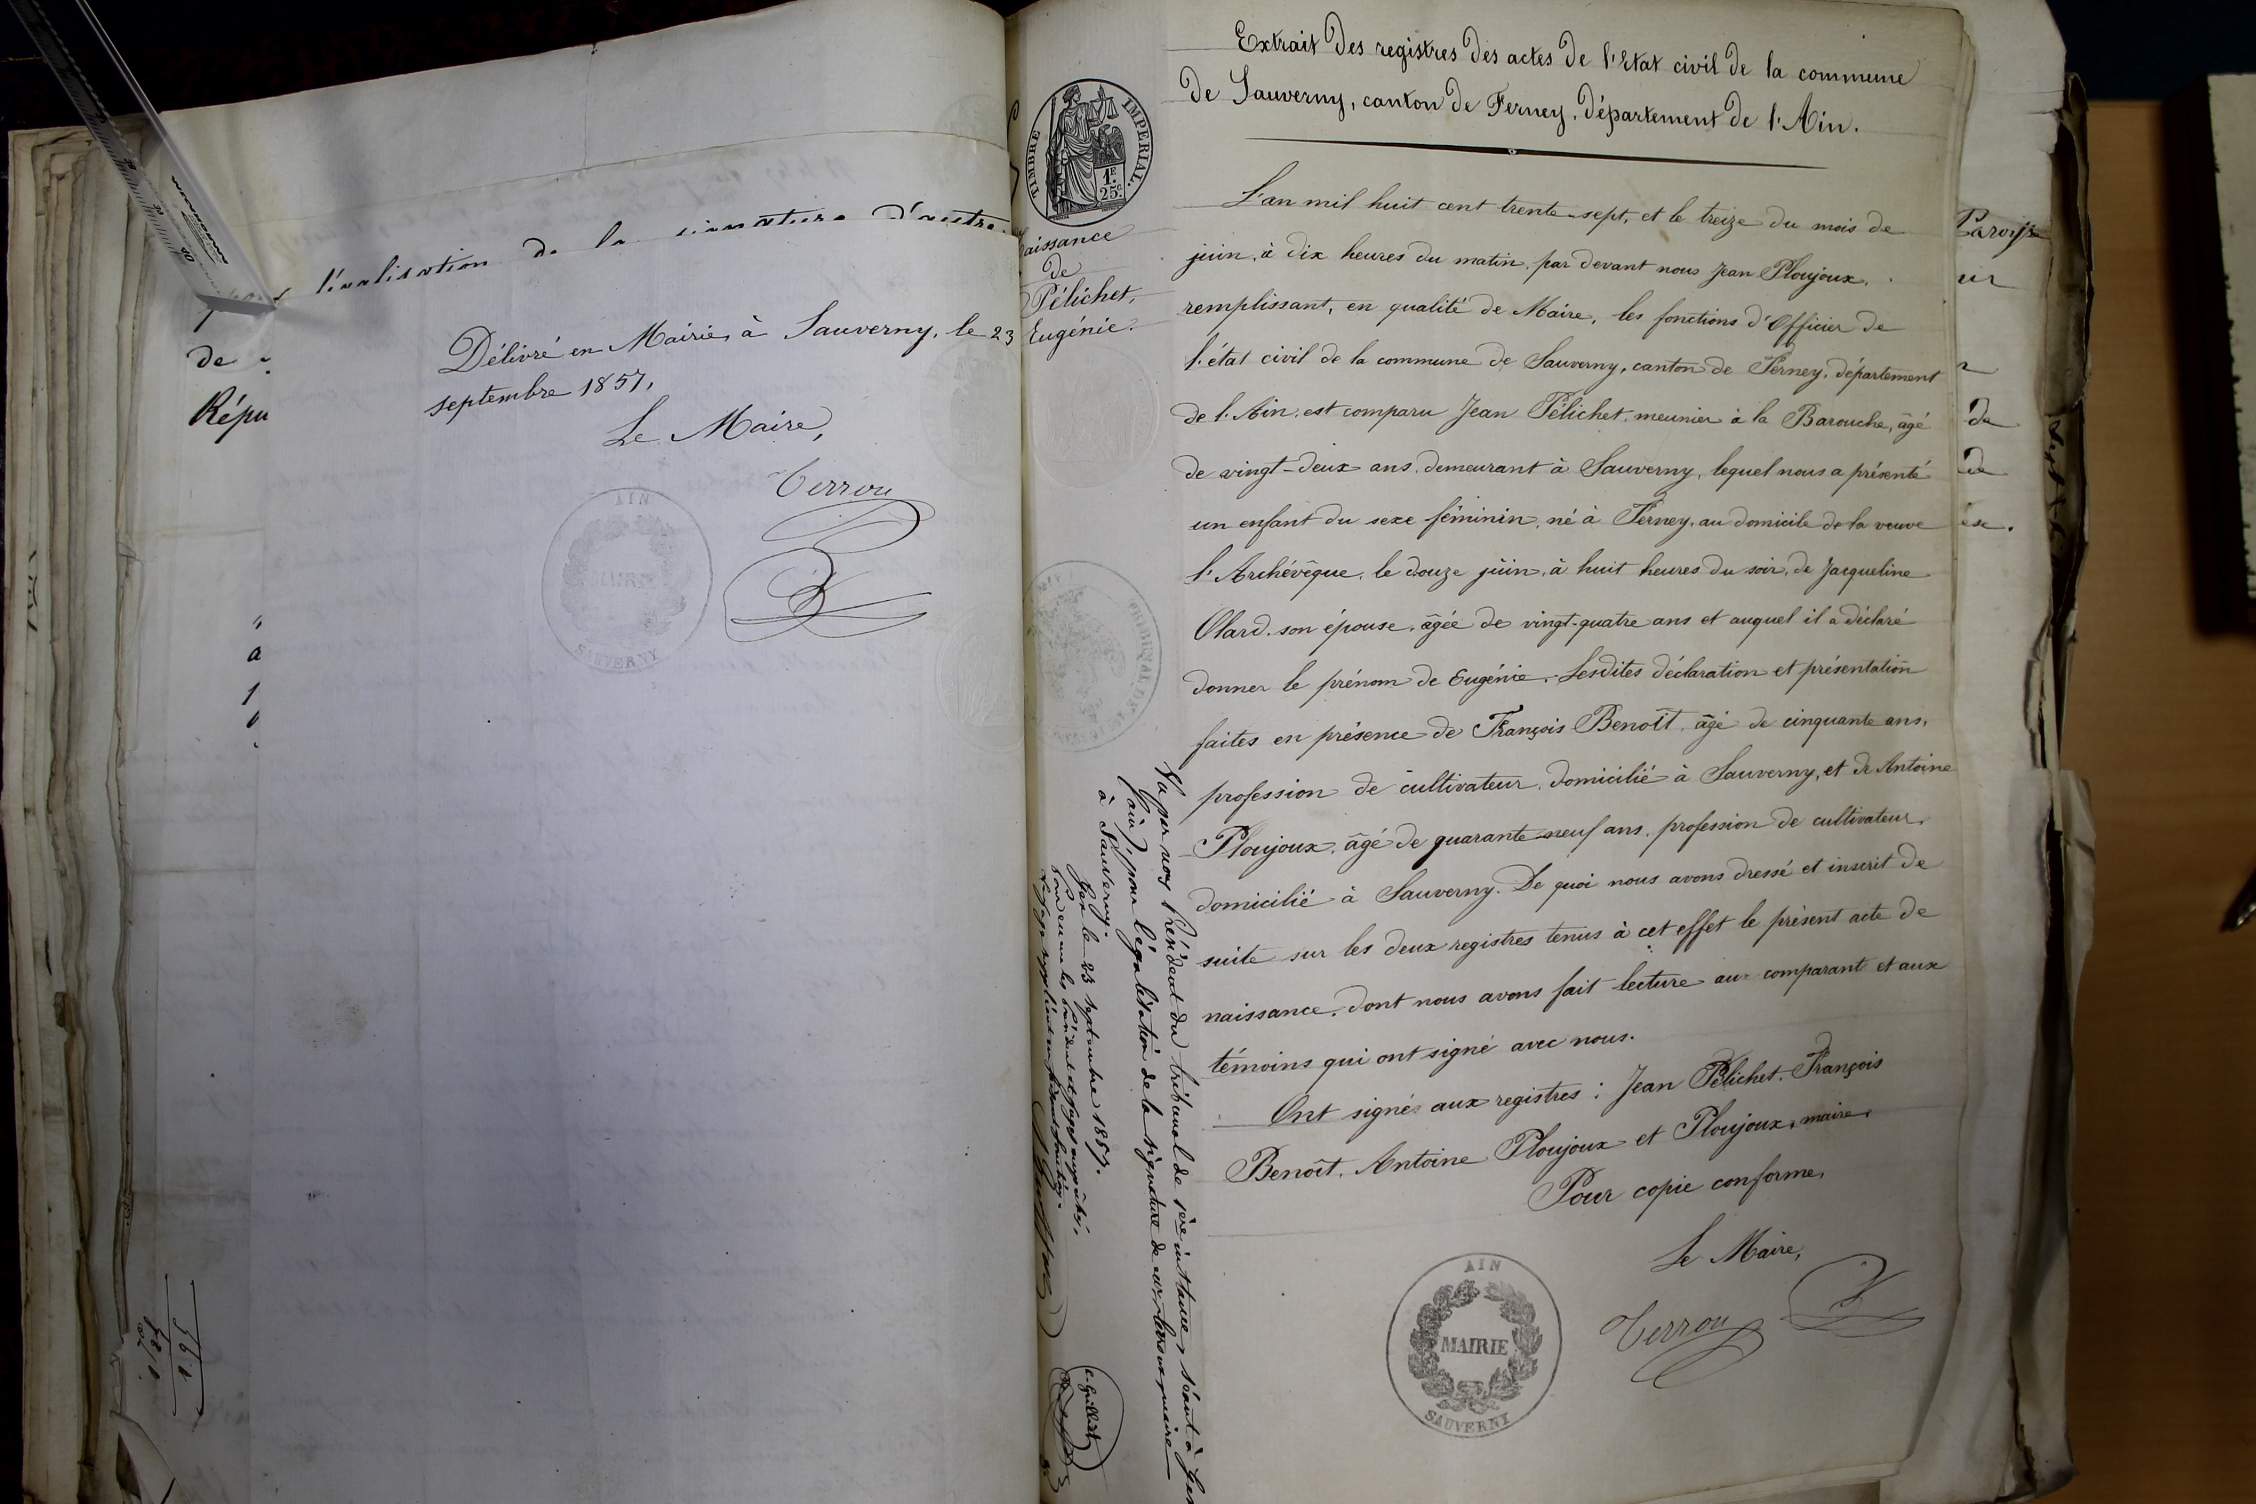 légalisation de la signature d'autre
de
Répu
Délivré en Mairie, à Sauverny, le 23
septembre 1857,
Le Maire,
Verrou
AIN
MAIRIE
SAUVERNY
TIMBRE IMPERIAL.
1F
25c
aissance
de
Pélichet,
Eugénie.
Extrait des registres des actes de l'Etat civil de la commune
de Sauverny, canton de Ferney, département de l'Ain.
L'an mil huit cent trente-sept, et le treize du mois de
juin, à dix heures du matin, par devant nous Jean Ploujoux,
remplissant, en qualité de Maire, les fonctions d'Officier de
l'état civil de la commune de Sauverny, canton de Ferney, département
de l'Ain, est comparu Jean Pélichet, meunier à la Barouche, âgé
de vingt-deux ans, demeurant à Sauverny, lequel nous a présenté
un enfant du sexe féminin, né à Ferney, au domicile de la veuve
l'Archévêque, le douze juin, à huit heures du soir, de Jacqueline
Olard, son épouse, âgée de vingt-quatre ans et auquel il a déclaré
donner le prénom de Eugénie. Lesdites déclaration et présentation
faites en présence de François Benoît, âgé de cinquante ans,
profession de cultivateur, domicilié à Sauverny, et de Antoine
Ploujoux, âgé de quarante-neuf ans, profession de cultivateur,
domicilié à Sauverny. De quoi nous avons dressé et inscrit de
suite sur les deux registres tenus à cet effet le présent acte de
naissance, dont nous avons fait lecture au comparant et aux
témoins qui ont signé avec nous.
Ont signés aux registres : Jean Pélichet, François
Benoît, Antoine Ploujoux et Ploujoux, maire.
Pour copie conforme,
Le Maire,
Verrou
AIN
MAIRIE
SAUVERNY
Vu par nous Président du tribunal de 1ère instance, séant à Gex
(Ain) pour légalisation de la signature de Mr Verrou, maire
à Sauverny.
Gex le 23 septembre 1857.
Paroisse
de
de